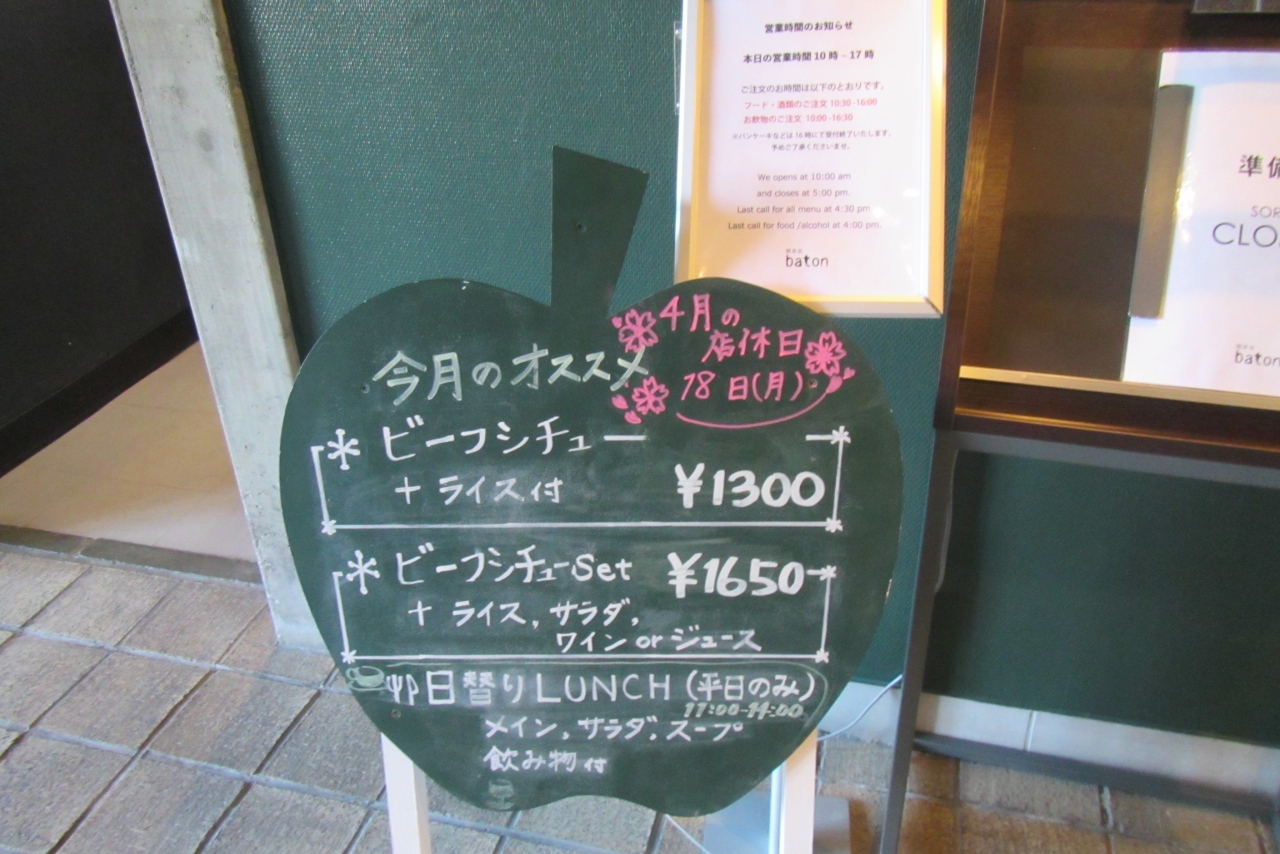 営業時間のお知らせ
本日の営業時間 10 時 – 17 時
ご注文のお時間は以下のとおりです。
フード・酒類のご注文 10:30 -16:00
お飲物のご注文 10:00 -16:30
※パンケーキなどは 16 時にて受付終了いたします。
予めご了承くださいませ。
We opens at 10:00 am
and closes at 5:00 pm.
Last call for all menu at 4:30 pm
Last call for food /alcohol at 4:00 pm.
baton
準備
CLO
baton
4月の
店休日
18日(月)
今月のオススメ
ビーフシチュー
+ ライス付
¥1300
ビーフシチューSet ¥1650
+ ライス, サラダ,
ワイン or ジュース
日替りLUNCH (平日のみ)
11:00-14:00
メイン, サラダ, スープ
飲み物付